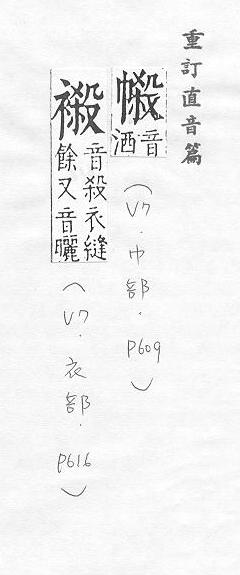 重訂直音篇
音洒
(V7．巾部．P609)
音殺衣縫
餘又音曬
(V7．衣部．P616)